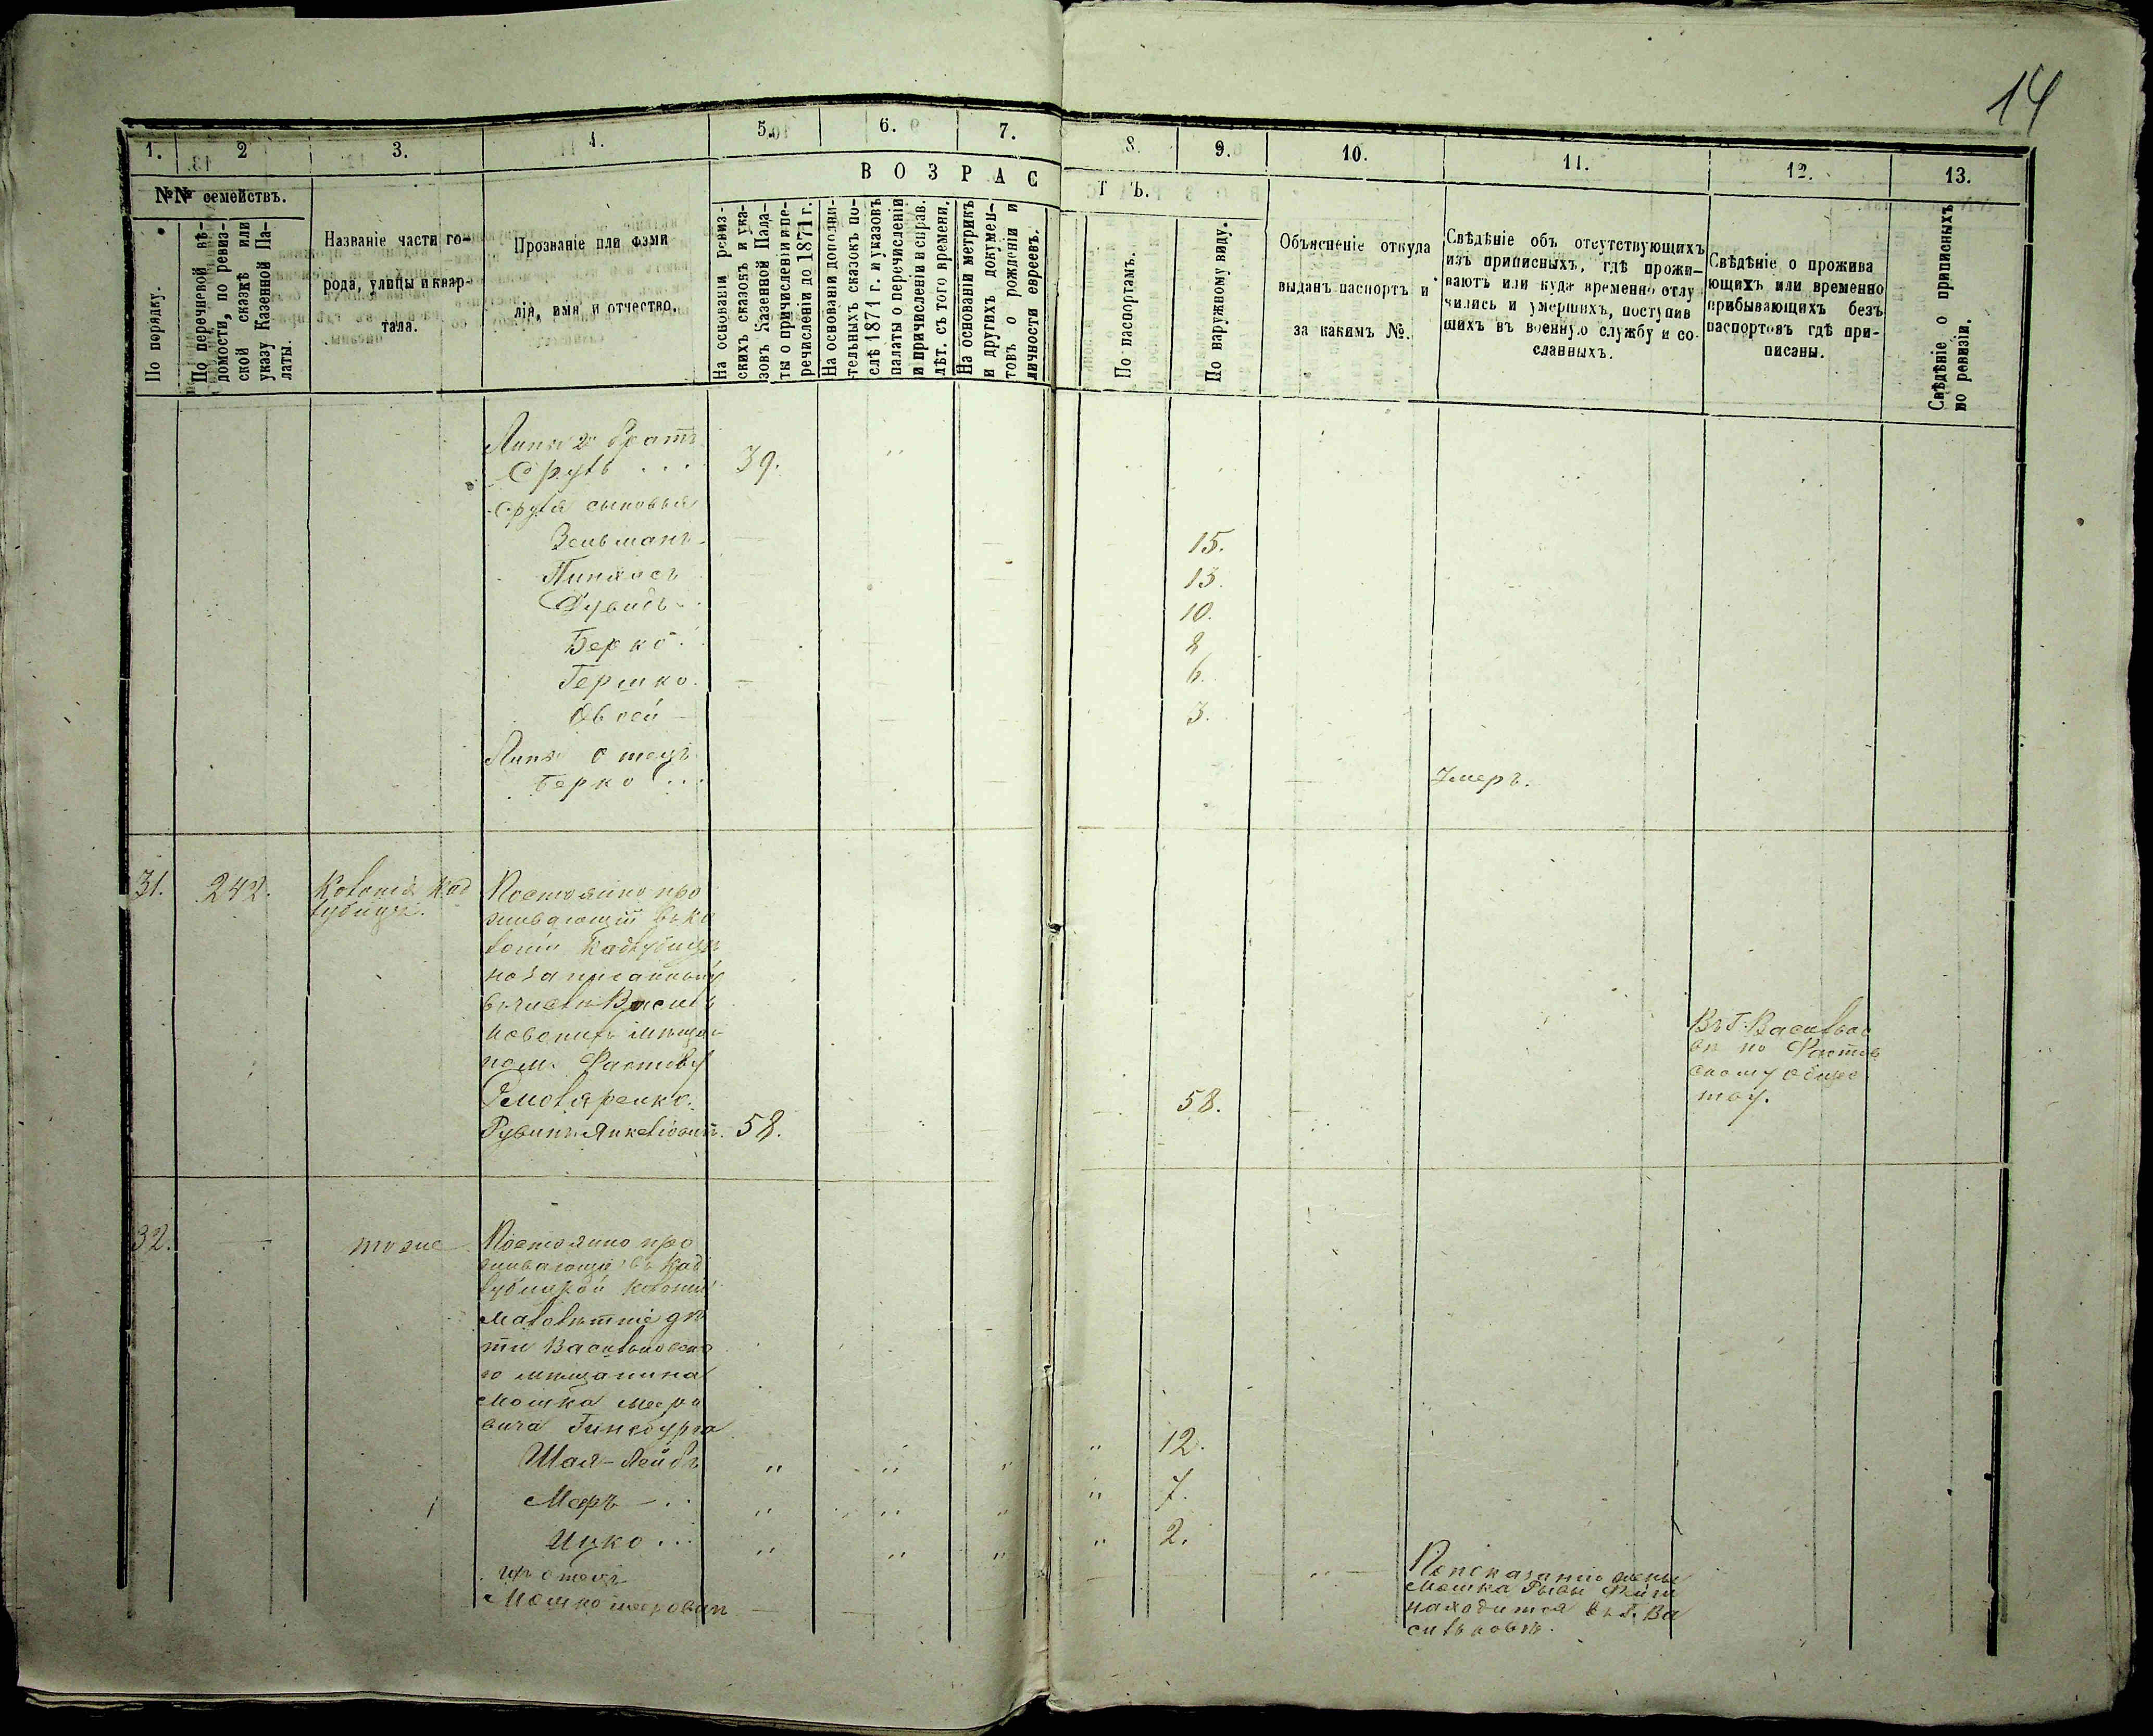 14
1. 2 3. 4. 5. 6. 7. 8. 9. 10. 11. 12. 13.
№№ семействъ.
В О З Р А С Т Ъ.
По порядку.
По перечневой вѣ-
домости, по ревиз-
ской сказкѣ или
указу Казенной Па-
латы.
Названіе части го-
рода, улицы и квар-
тала.
Прозваніе или фами
лія, имя и отчество.
На основаніи ревиз-
скихъ сказокъ и ука-
зовъ Казенной Пала-
ты о причисленіи и пе-
речисленіи до 1871 г.
На основаніи дополни-
тельныхъ сказокъ по-
слѣ 1871 г. и указовъ
палаты о перечисленіи
и причисленіи и справ.
лѣт. съ того времени.
На основаніи метрикъ
и другихъ докумен-
товъ о рожденіи и
личности евреевъ.
По паспортамъ.
По наружному виду.
Объясненіе откуда
выданъ паспортъ и
за какимъ №.
Свѣдѣніе объ отсутствующихъ
изъ приписныхъ, гдѣ прожи-
ваютъ или куда временно отлу
чились и умершихъ, поступив
шихъ въ военную службу и со-
сланныхъ.
Свѣдѣніе о прожива
ющихъ или временно
прибывающихъ безъ
паспортовъ гдѣ при-
писаны.
Свѣдѣніе о приписныхъ
по ревизіи.
братъ
Сруль . . . 39.
Сруля сыновья
Зельманъ 15.
Пинхасъ 13.
Дувидъ 10.
Берко
Гершко. 6.
Овсей 3.
отецъ
Берко . . . Умеръ.
31. 242. Колонія Кад
лубица.
Постоянно про
живающій въ ко
лоніи Кадлубицѣ
но записанный
въ числѣ Василь
ковскихъ мѣщан
Фастову
Рувинъ Янкеліовичъ. 58. 58.
Въ г. Василько
вѣ по Фастов
скому общес
тву.
32. тоже
Постоянно про
живающіе въ Кад
лубицкой колоніи
малолѣтніе дѣ
ти Васильковска
го мѣщанина
Мошка Меро
вича Гинсбурга
Шая-Лейбъ „ „ „ „ 12.
Меръ „ „ „ „ 7.
Ицко . . . „ „ „ „ 2.
ихъ отецъ
Мошко Меровичъ
По показанію жены
Мошка
находится въ г. Ва
сильковѣ.